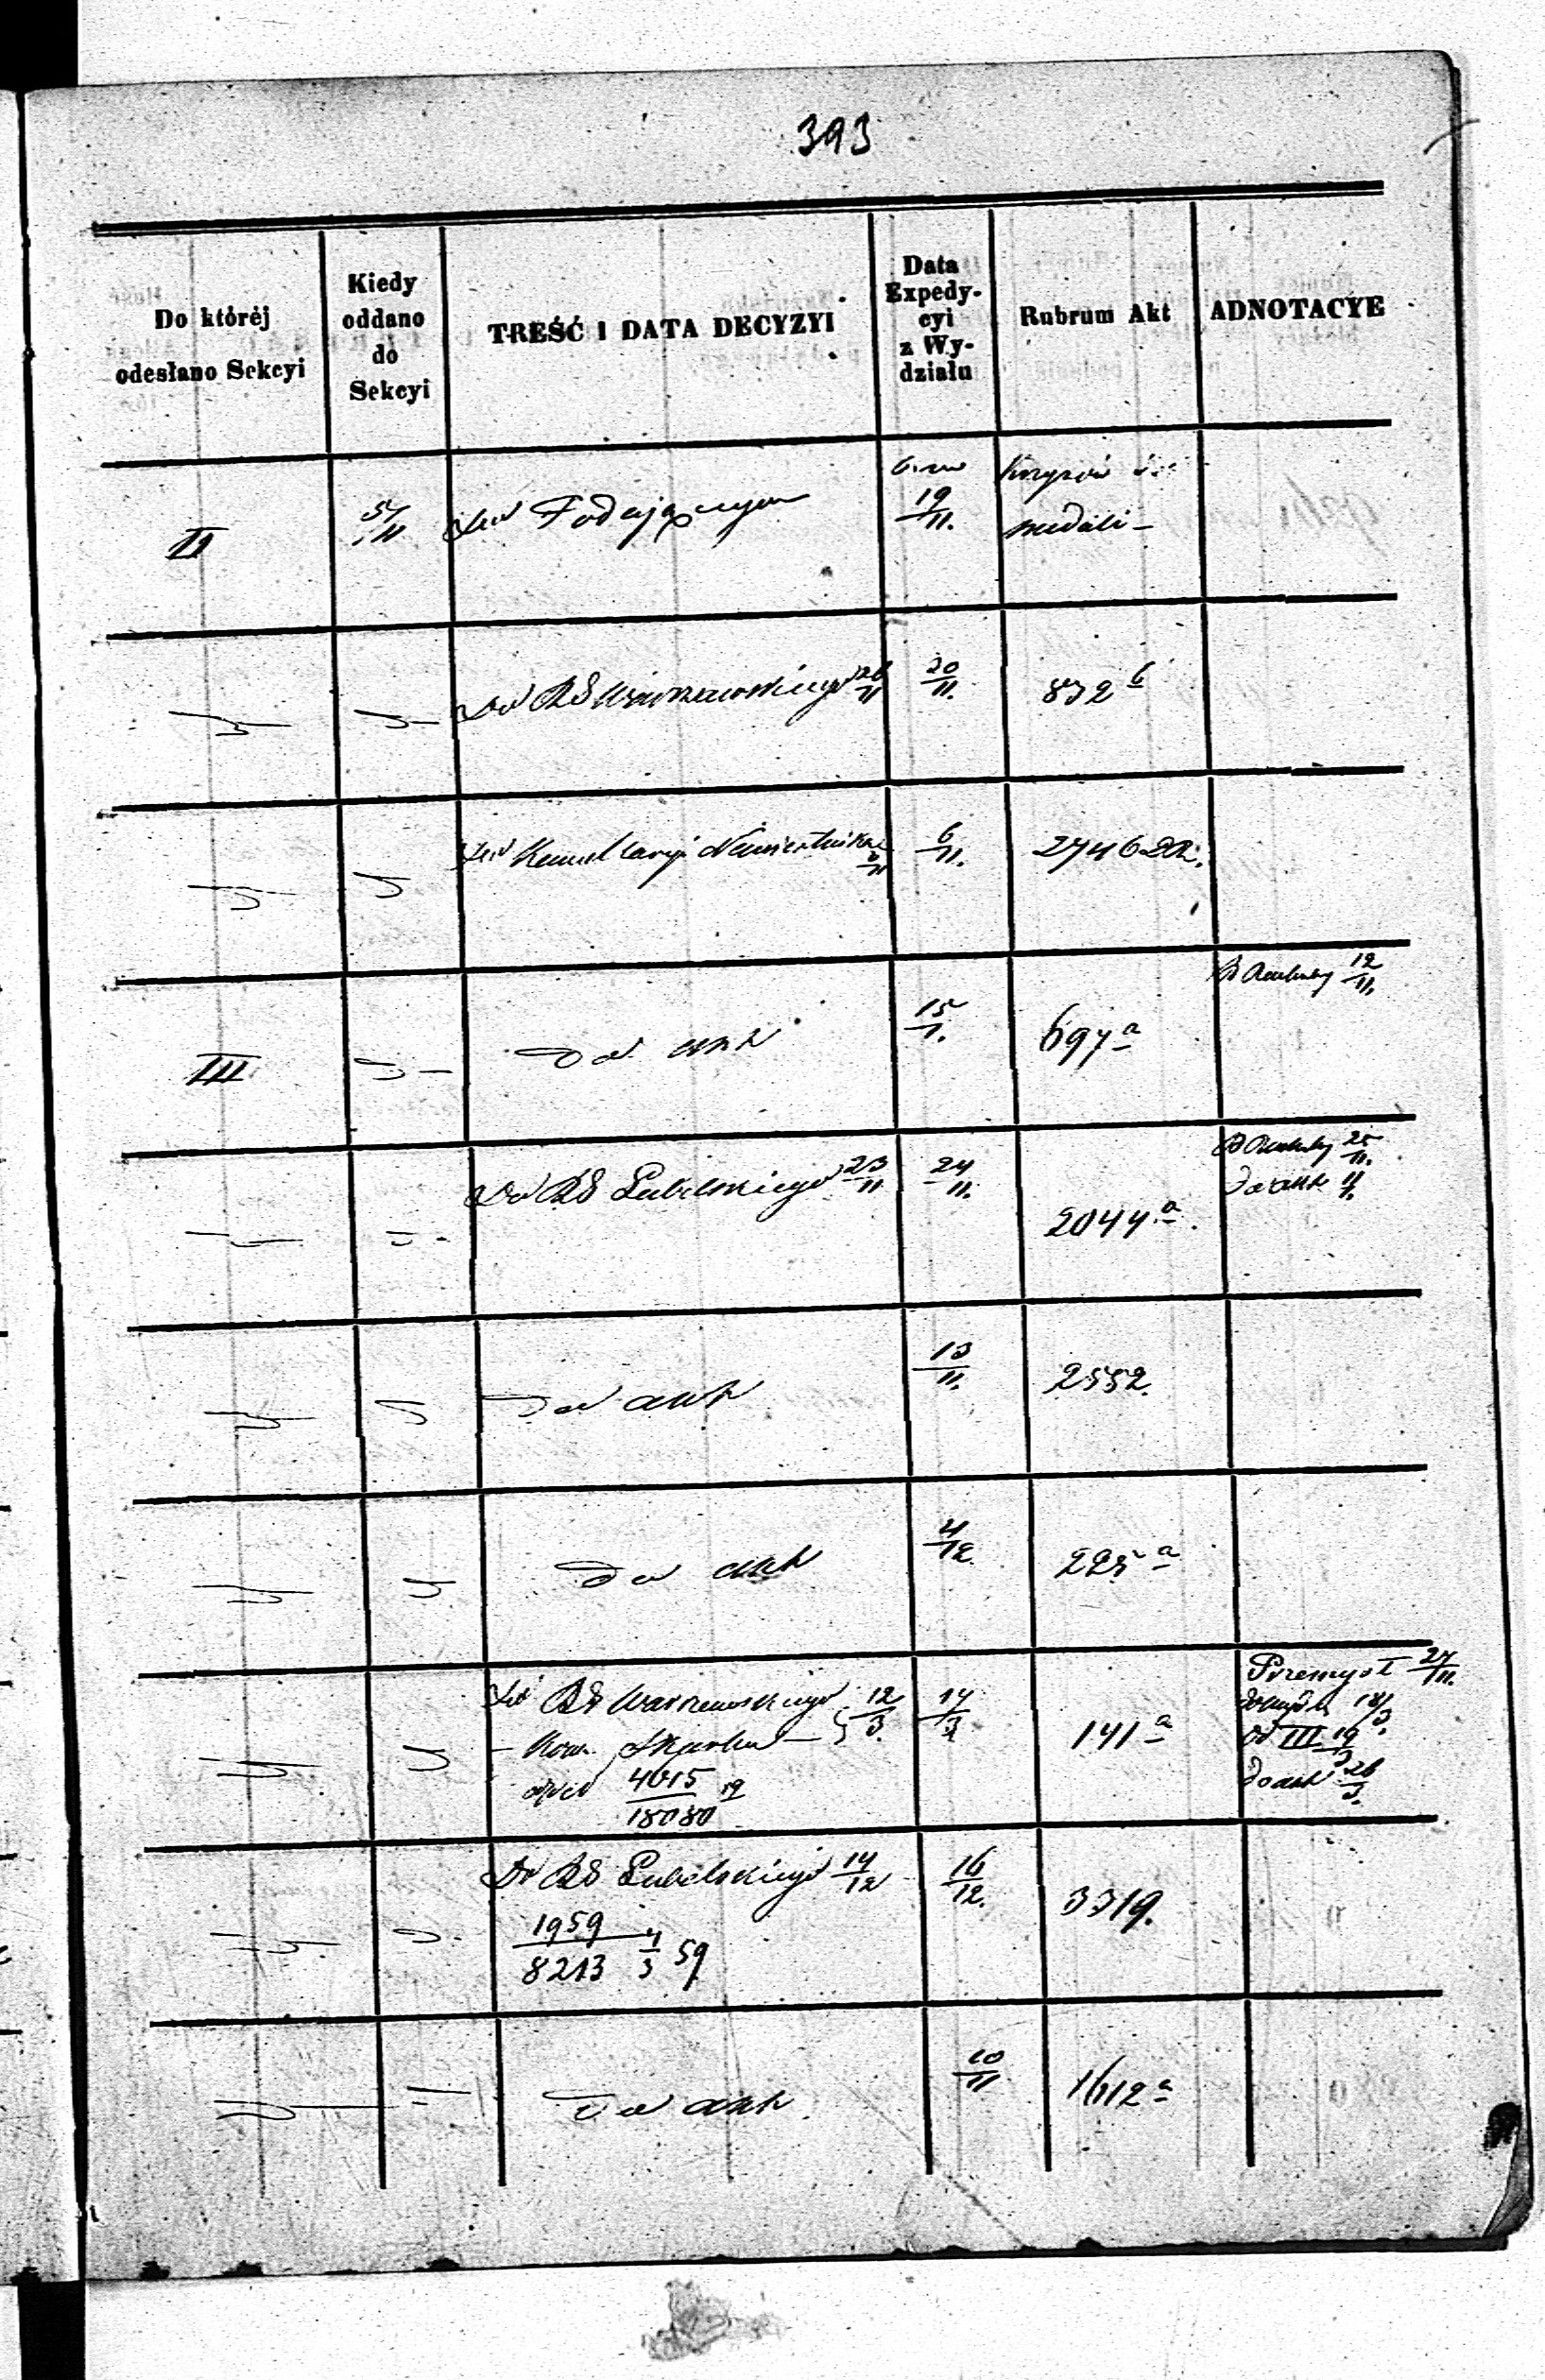 393
Do któréj
odesłano Sekcyi
Kiedy
oddano
do
Sekcyi
TREŚĆ I DATA DECYZYI
Data
Expedy-
cyi
z Wy-
działu
Rubrum Akt
ADNOTACYE
II
5/11
Podającym
19/11.
medali –
Do RG Warszawskiego
20/11.
832 b
Kancellaryi Namiestnika 6/11
6/11.
III
do akt
697 a
12/11.
Do RG Lubelskiego 23/11
24/11.
2044 a
25/11.
do akt
do akt
13/11.
2552.
do akt
4/12
225 a
Do RG Warszawskiego 12/3.
– Kom. Skarbu –
4615/18080
14/3
141 a
Przemysł 27/11.
18/3
III 19/3
do akt 26/3.
Do RG Lubelskiego 14/12
1959/8213 4/3 59
16/12.
3319.
do akt
10/11
1612 a